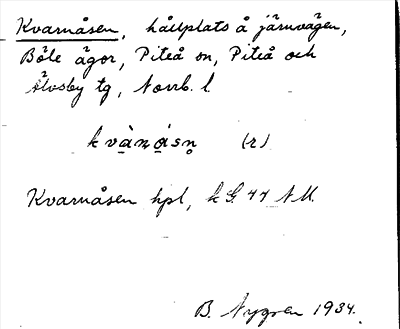 Kvarnåsen, hållplats å järnvägen,
Böle ägor, Piteå sn, Piteå och
Älvsby tg, Norrb. l.
kvànåsn (r)
Kvarnåsen hpl, k G. 44 NU.
B. Nygren 1934.